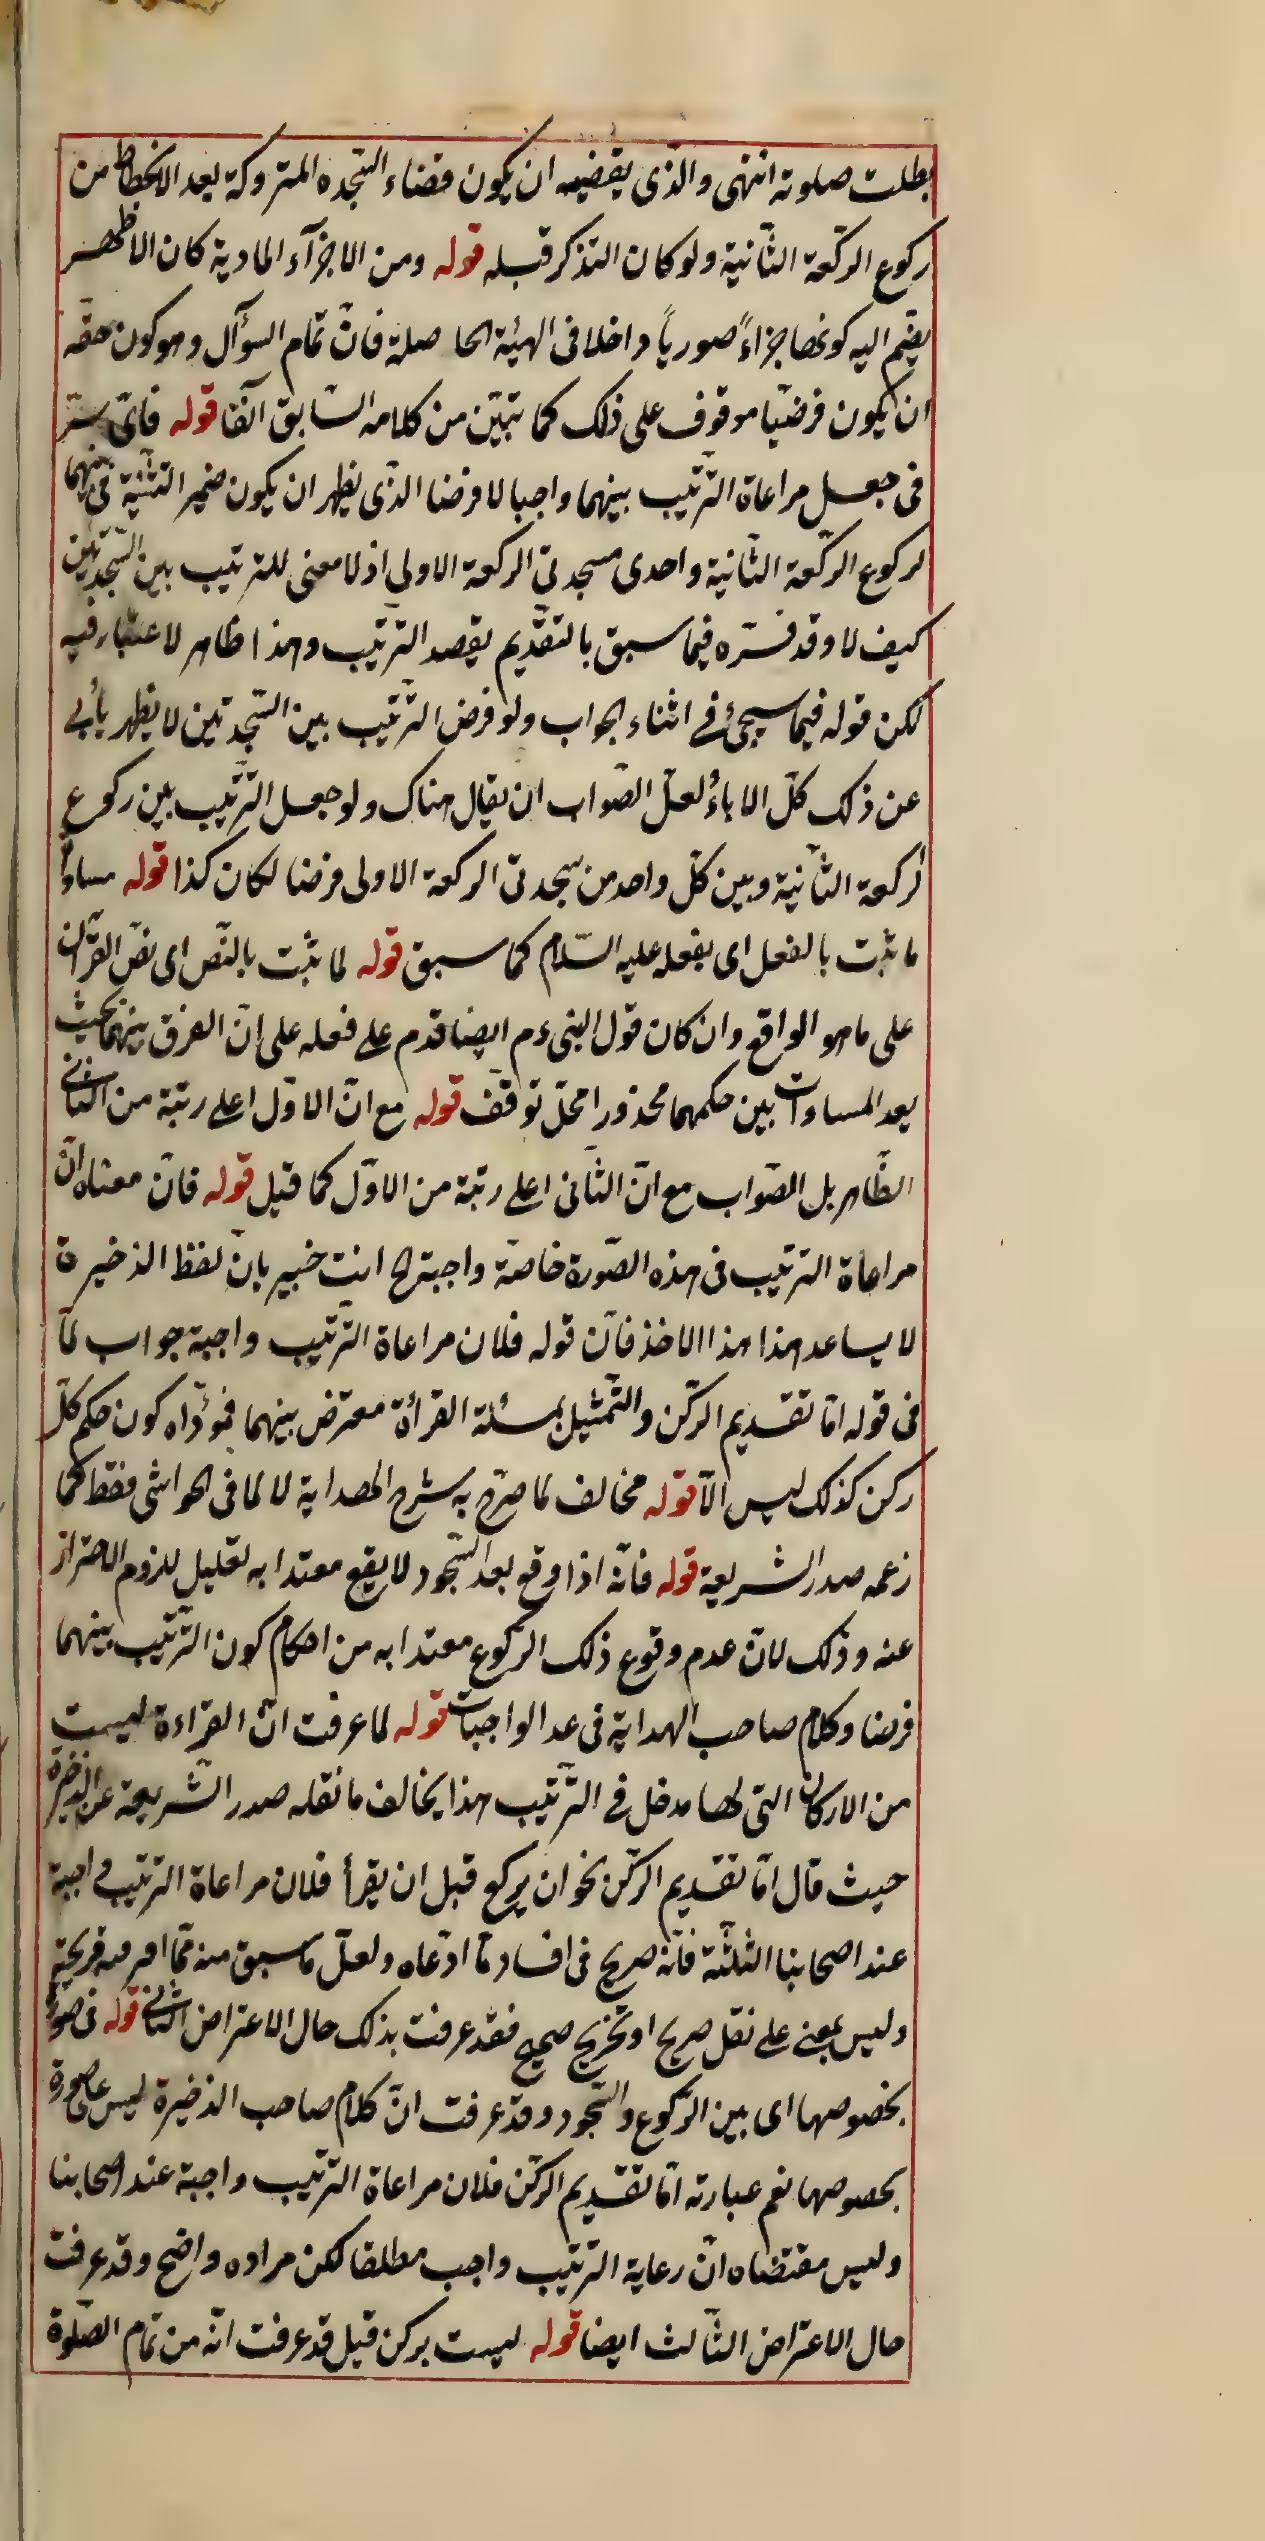 بطلت صلوته انتهى والذى يقضيه ان يكون قضاء السّجده المتروكة بعد الانحطاط من
ركوع الركّعة الثّانية ولو كان التذكر قبله قوله ومن الاجزآء المادية كان الاظهر
يضّم اليه كونها جزاءً صورياً داخلا فى الهيئة الحاصلة فانّ تمام السوآل وهو كون حقه
ان يكون فرضيّا موقوف على ذلك كما تبيّن من كلامه السّابق آنفا قوله فاىّ ستر
فى جعل مراعاة التّرتيب بينهما واجبا لا فرضا الذّى يظهر ان يكون ضمير التثنية فى بينهما
لركوع الركّعة الثّانية واحدى سجدتى الركعة الاولى اذ لا معنى للترتيب بين السّجدتين
كيف لا وقد فسّره فيما سبق بالتقّديم بقصد التّرتيب وهذا ظاهر لا عتبار فيه
لكن قوله فيما سيجئ فے اثناء الجواب ولو فرض التّرتيب بين السّجدتين لا يظهر يأبى
عن ذلك كلّ الاباءُ لعلّ الصّواب ان يقال هناك ولو جعل التّرتيب بين ركوع
الركعة الثّانية وبين كلّ واحد من سجدتى الركعة الاولى فرضا لكان كذا قوله مساواً
ما ثبت بالفعل اى بفعله عليه السّلام كما سبق قوله لما ثبت بالنّص اى نصّ القرّان
على ما هو الواقع وان كان قول النبى ءم ايضا قدم علے فعله على انّ الفرق بينهما بحيث
يعد المساوات بين حكمهما محذورا محلّ توقّف قوله مع انّ الاوّل اعلے رتبة من الثانے
الظّاهر بل الصّواب مع انّ الثّانى اعلے رتبة من الاوّل كما قيل قوله فانّ معناه انّ
مراعاة الترتيب فى هذه الصّورة خاصّة واجبة الخ انت خبير بانّ لفظ الذخيرة
لا يساعد هذا هذا الاخذ فانّ قوله فلان مراعاة التّرتيب واجبة جواب لمّا
فى قوله امّا تقديم الركّن والتّمثيل بمسئلة القرأة معترض بينهما فمؤدّاه كون حكم كلّ
ركن كذلك ليس الاّ قوله مخالف لما صرّح به شرح الهداية لا لما فى الحواشى فقط كما
زعمه صدر الشّريعة قوله فانّه اذا وقع بعد السّجود لا يقع معتدا به تعليل للزوم الاحتراز
عنه وذلك لانّ عدم وقوع ذلك الركّوع معتدا به من احكام كون التّرتيب بينهما
فرضا وكلام صاحب الهداية فى عد الواجبات قوله لما عرفت انّ القراءة ليست
من الاركان التى لها مدخل فے التّرتيب هذا يخالف ما نقله صدر الشّريعة عن الذخيرة
حيث قال امّا تقديم الركّن نحو ان يركع قبل ان يقرأ فلان مراعاة الترتيب واجبة
عند اصحابنا الثلثّة فانّه صريح فى افساد ما ادّعاه ولعلّ ما سبق منه ممّا قريحته
وليس بمبنى علے نقل صريح او تخريج صحيح فقد عرفت بذلك حال الاعتراض الثانے قوله فى صورة
بخصوصها اى بين الركّوع والسّجود وقد عرفت انّ كلام صاحب الذخيرة ليس على صورة
بخصوصها نعم عبارته امّا تقديم الركّن فلان مراعاة الترتيب واجبة عند اصحابنا
وليس مقتضاه انّ رعاية الترتيب واجب مطلقا لكن مراده واضح وقد عرفت
حال الاعتراض الثّالث ايضا قوله ليست بركن قيل قد عرفت انّه من تمام الصّلوة